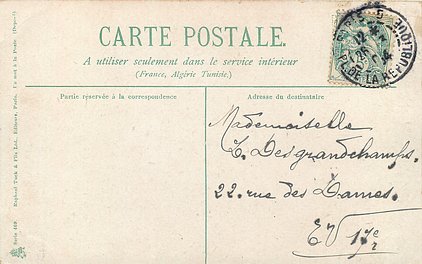 CARTE POSTALE.
A utiliser seulement dans le service intérieur
(France, Algérie Tunisie.)
Partie réservée à la correspondance
Adresse du destinataire
Mademoiselle
E. Desgrandchamps.
22 rue des Dames.
EV 17e
PARIS
PL. DE LA REPUBLIQUE
Raphael Tuck & Fils, Ltd. Editeurs, Paris.